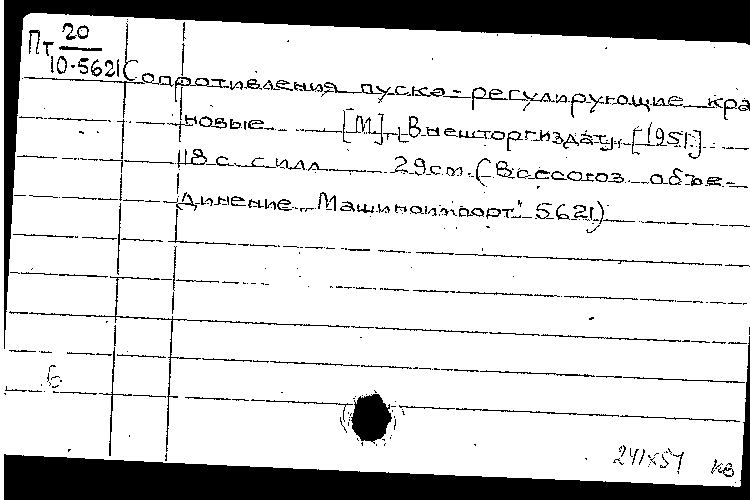 Пт 20
10-5621 Сопротивления пуско-регулирующие кра
новые [М], [Внешторгиздат], [1951].
118 с. с илл. 29 см. (Всесоюз. объе-
динение "Машиноимпорт" 5621)
6
241х51 кв